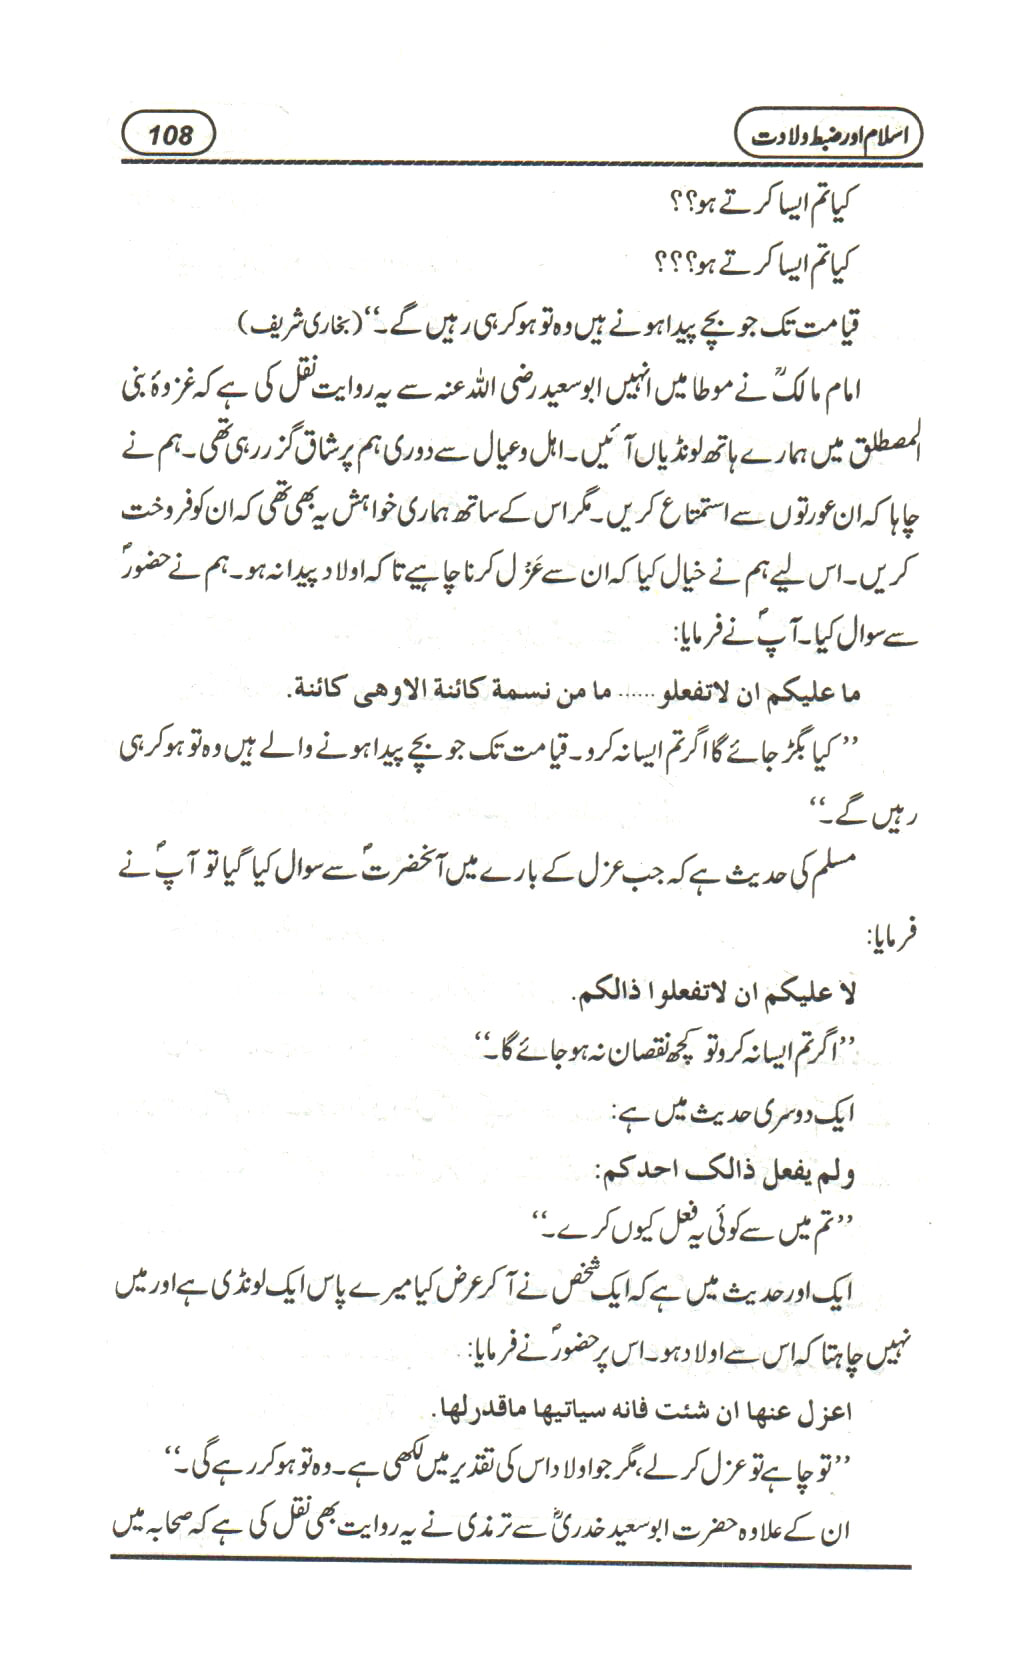 اسلام اور ضبط ولادت
108
کیا تم ایسا کرتے ہو؟؟
کیا تم ایسا کرتے ہو؟؟؟
قیامت تک جو بچے پیدا ہونے ہیں وہ تو ہو کر ہی رہیں گے۔‘‘ (بخاری شریف)
امام مالکؒ نے موطا میں انہیں ابو سعید رضی اللہ عنہ سے یہ روایت نقل کی ہے کہ غزوۂ بنی
المصطلق میں ہمارے ہاتھ لونڈیاں آئیں۔ اہل و عیال سے دوری ہم پر شاق گزر رہی تھی۔ ہم نے
چاہا کہ ان عورتوں سے استمتاع کریں۔ مگر اس کے ساتھ ہماری خواہش یہ بھی تھی کہ ان کو فروخت
کریں۔ اس لیے ہم نے خیال کیا کہ ان سے عَزْل کرنا چاہیے تاکہ اولاد پیدا نہ ہو۔ ہم نے حضورؐ
سے سوال کیا۔ آپؐ نے فرمایا:
ما علیکم ان لاتفعلو ...... ما من نسمة کائنة الاوھی کائنة.
’’کیا بگڑ جائے گا اگر تم ایسا نہ کرو۔ قیامت تک جو بچے پیدا ہونے والے ہیں وہ تو ہو کر ہی
رہیں گے۔‘‘
مسلم کی حدیث ہے کہ جب عزل کے بارے میں آنحضرتؐ سے سوال کیا گیا تو آپؐ نے
فرمایا:
لا علیکم ان لاتفعلوا ذالکم.
’’اگر تم ایسا نہ کرو تو کچھ نقصان نہ ہو جائے گا۔‘‘
ایک دوسری حدیث میں ہے:
ولم یفعل ذالک احدکم:
’’تم میں سے کوئی یہ فعل کیوں کرے۔‘‘
ایک اور حدیث میں ہے کہ ایک شخص نے آ کر عرض کیا میرے پاس ایک لونڈی ہے اور میں
نہیں چاہتا کہ اس سے اولاد ہو۔ اس پر حضورؐ نے فرمایا:
اعزل عنھا ان شئت فانه سیاتیھا ماقدرلھا.
’’تو چاہے تو عزل کر لے، مگر جو اولاد اس کی تقدیر میں لکھی ہے۔ وہ تو ہو کر رہے گی۔‘‘
ان کے علاوہ حضرت ابو سعید خدریؓ سے ترمذی نے یہ روایت بھی نقل کی ہے کہ صحابہ میں